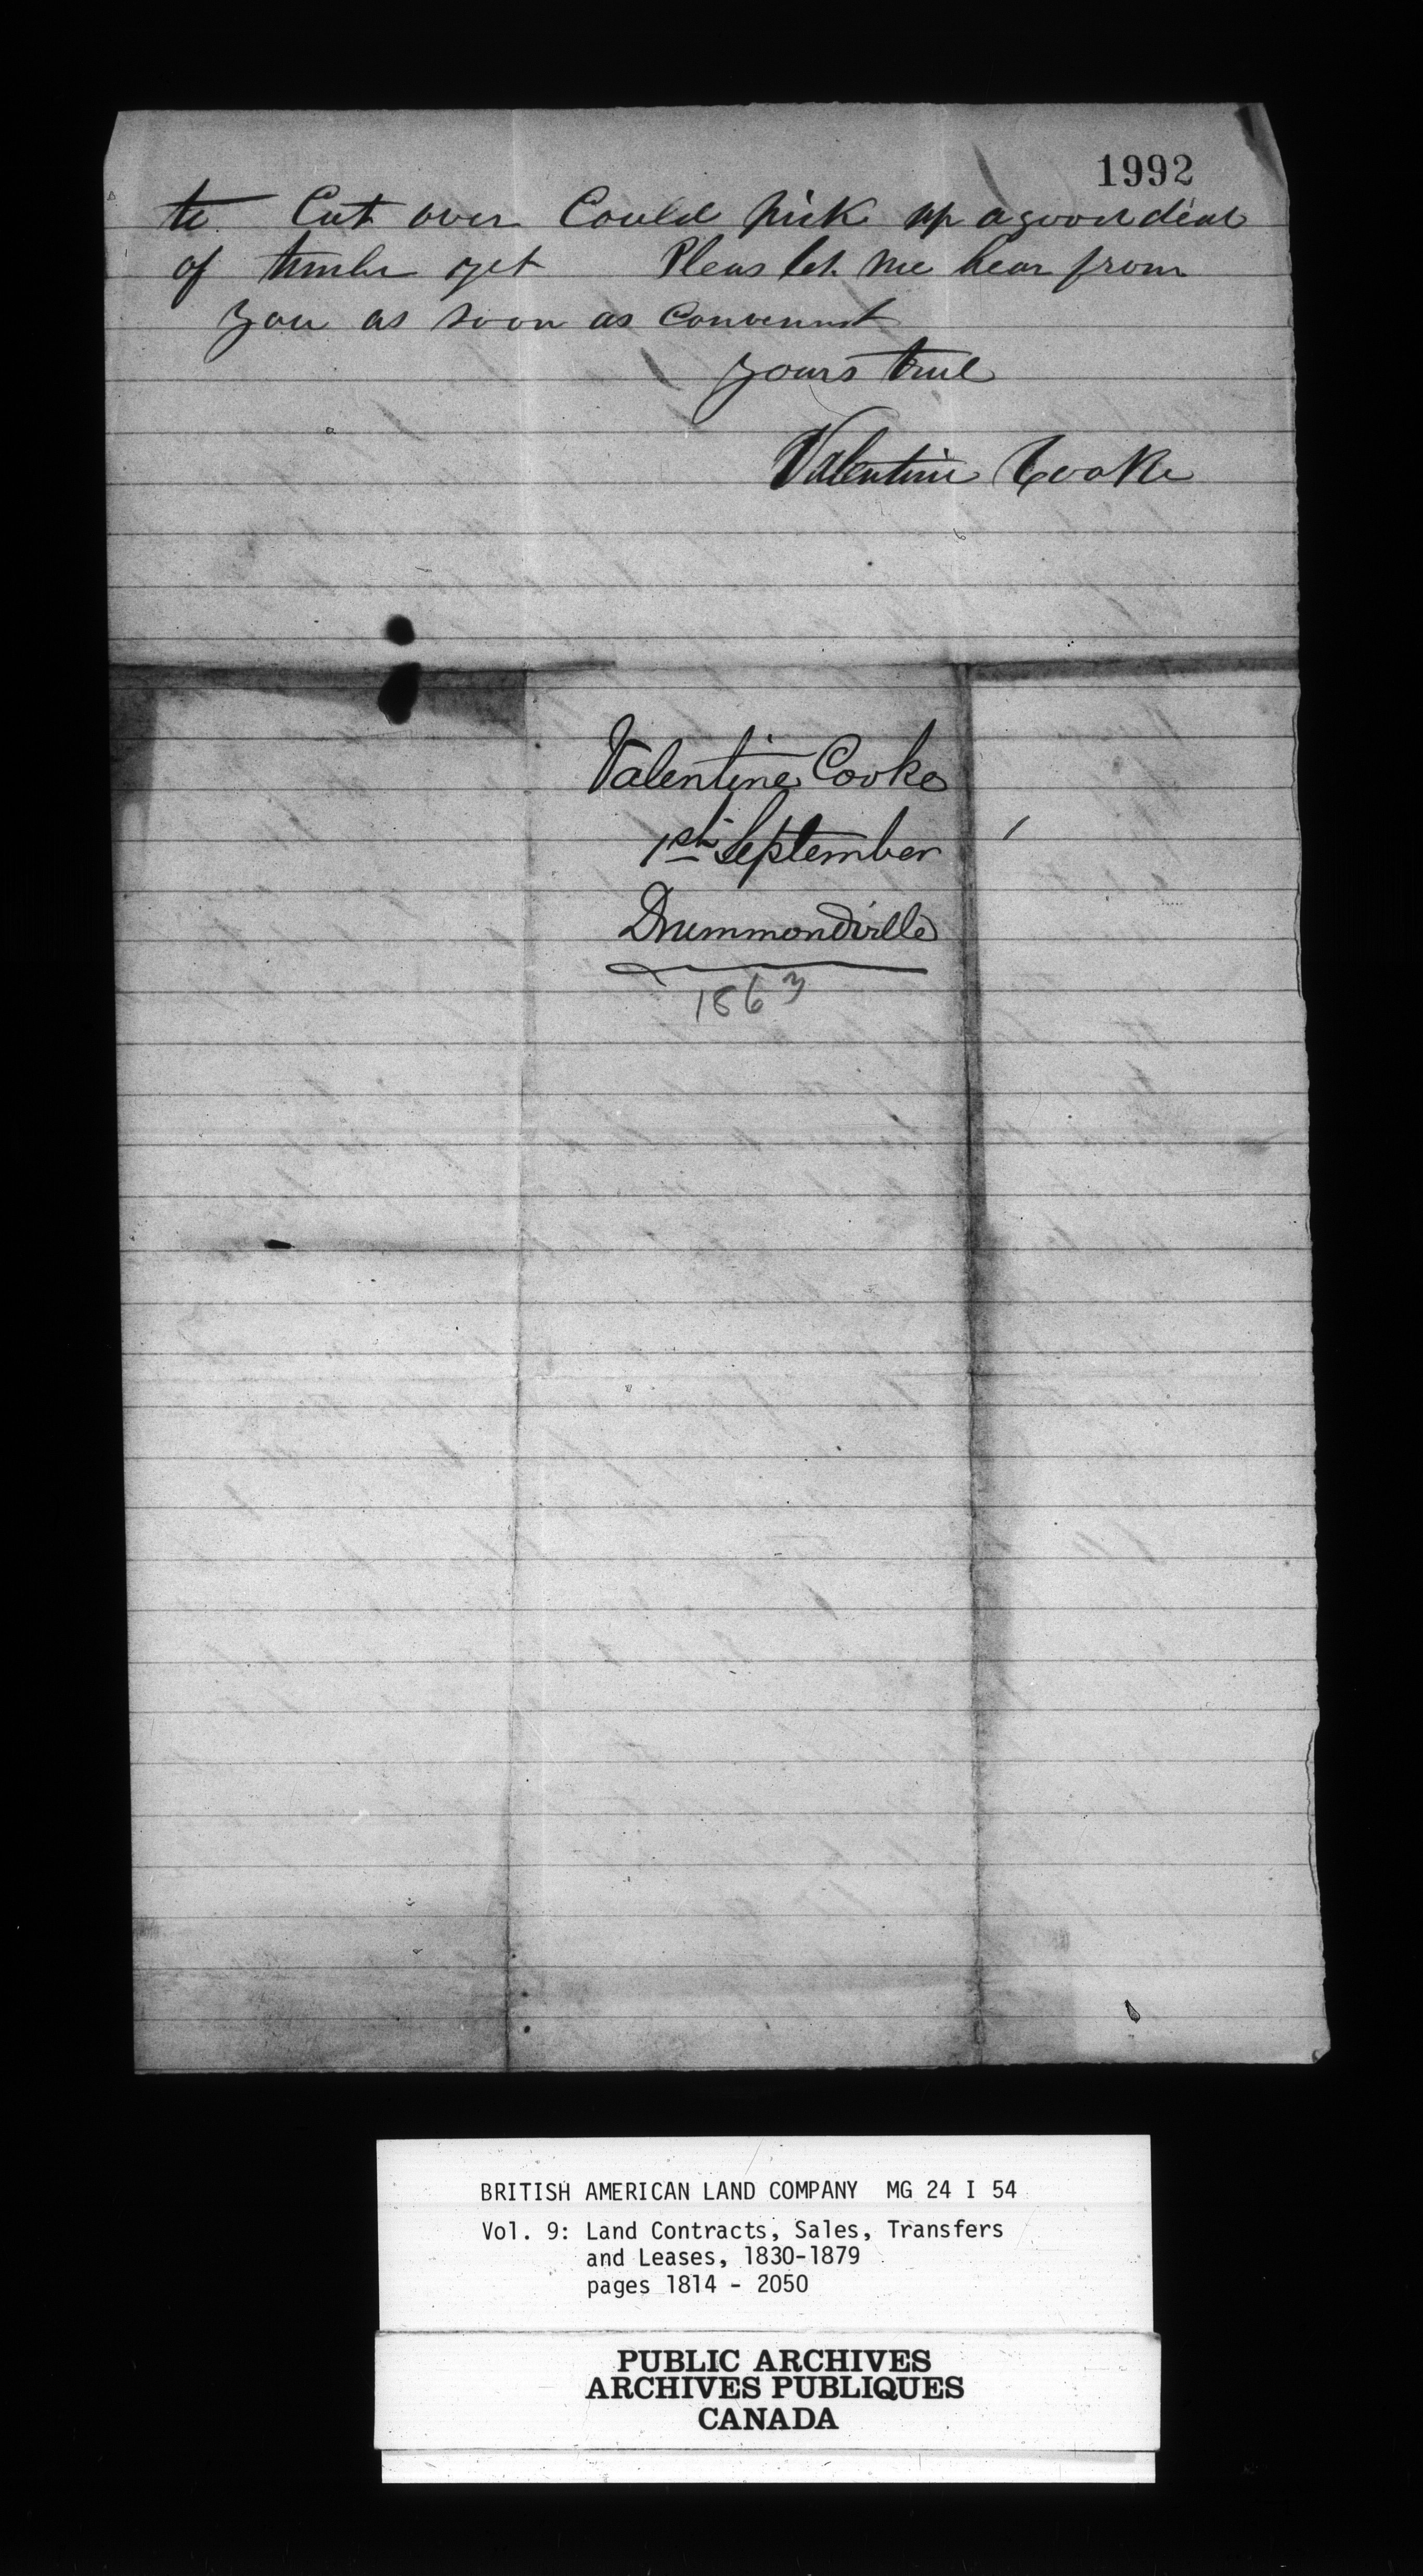 1992
to Cut over Could pick up a good deal
of timber yet Pleas let me hear from
you as soon as Convennit
yours true
Valentine Cooke
Valentine Cooke
1st September
Drummondville
1863
BRITISH AMERICAN LAND COMPANY MG 24 I 54
Vol. 9: Land Contracts, Sales, Transfers
and Leases, 1830-1879
pages 1814 - 2050
PUBLIC ARCHIVES
ARCHIVES PUBLIQUES
CANADA